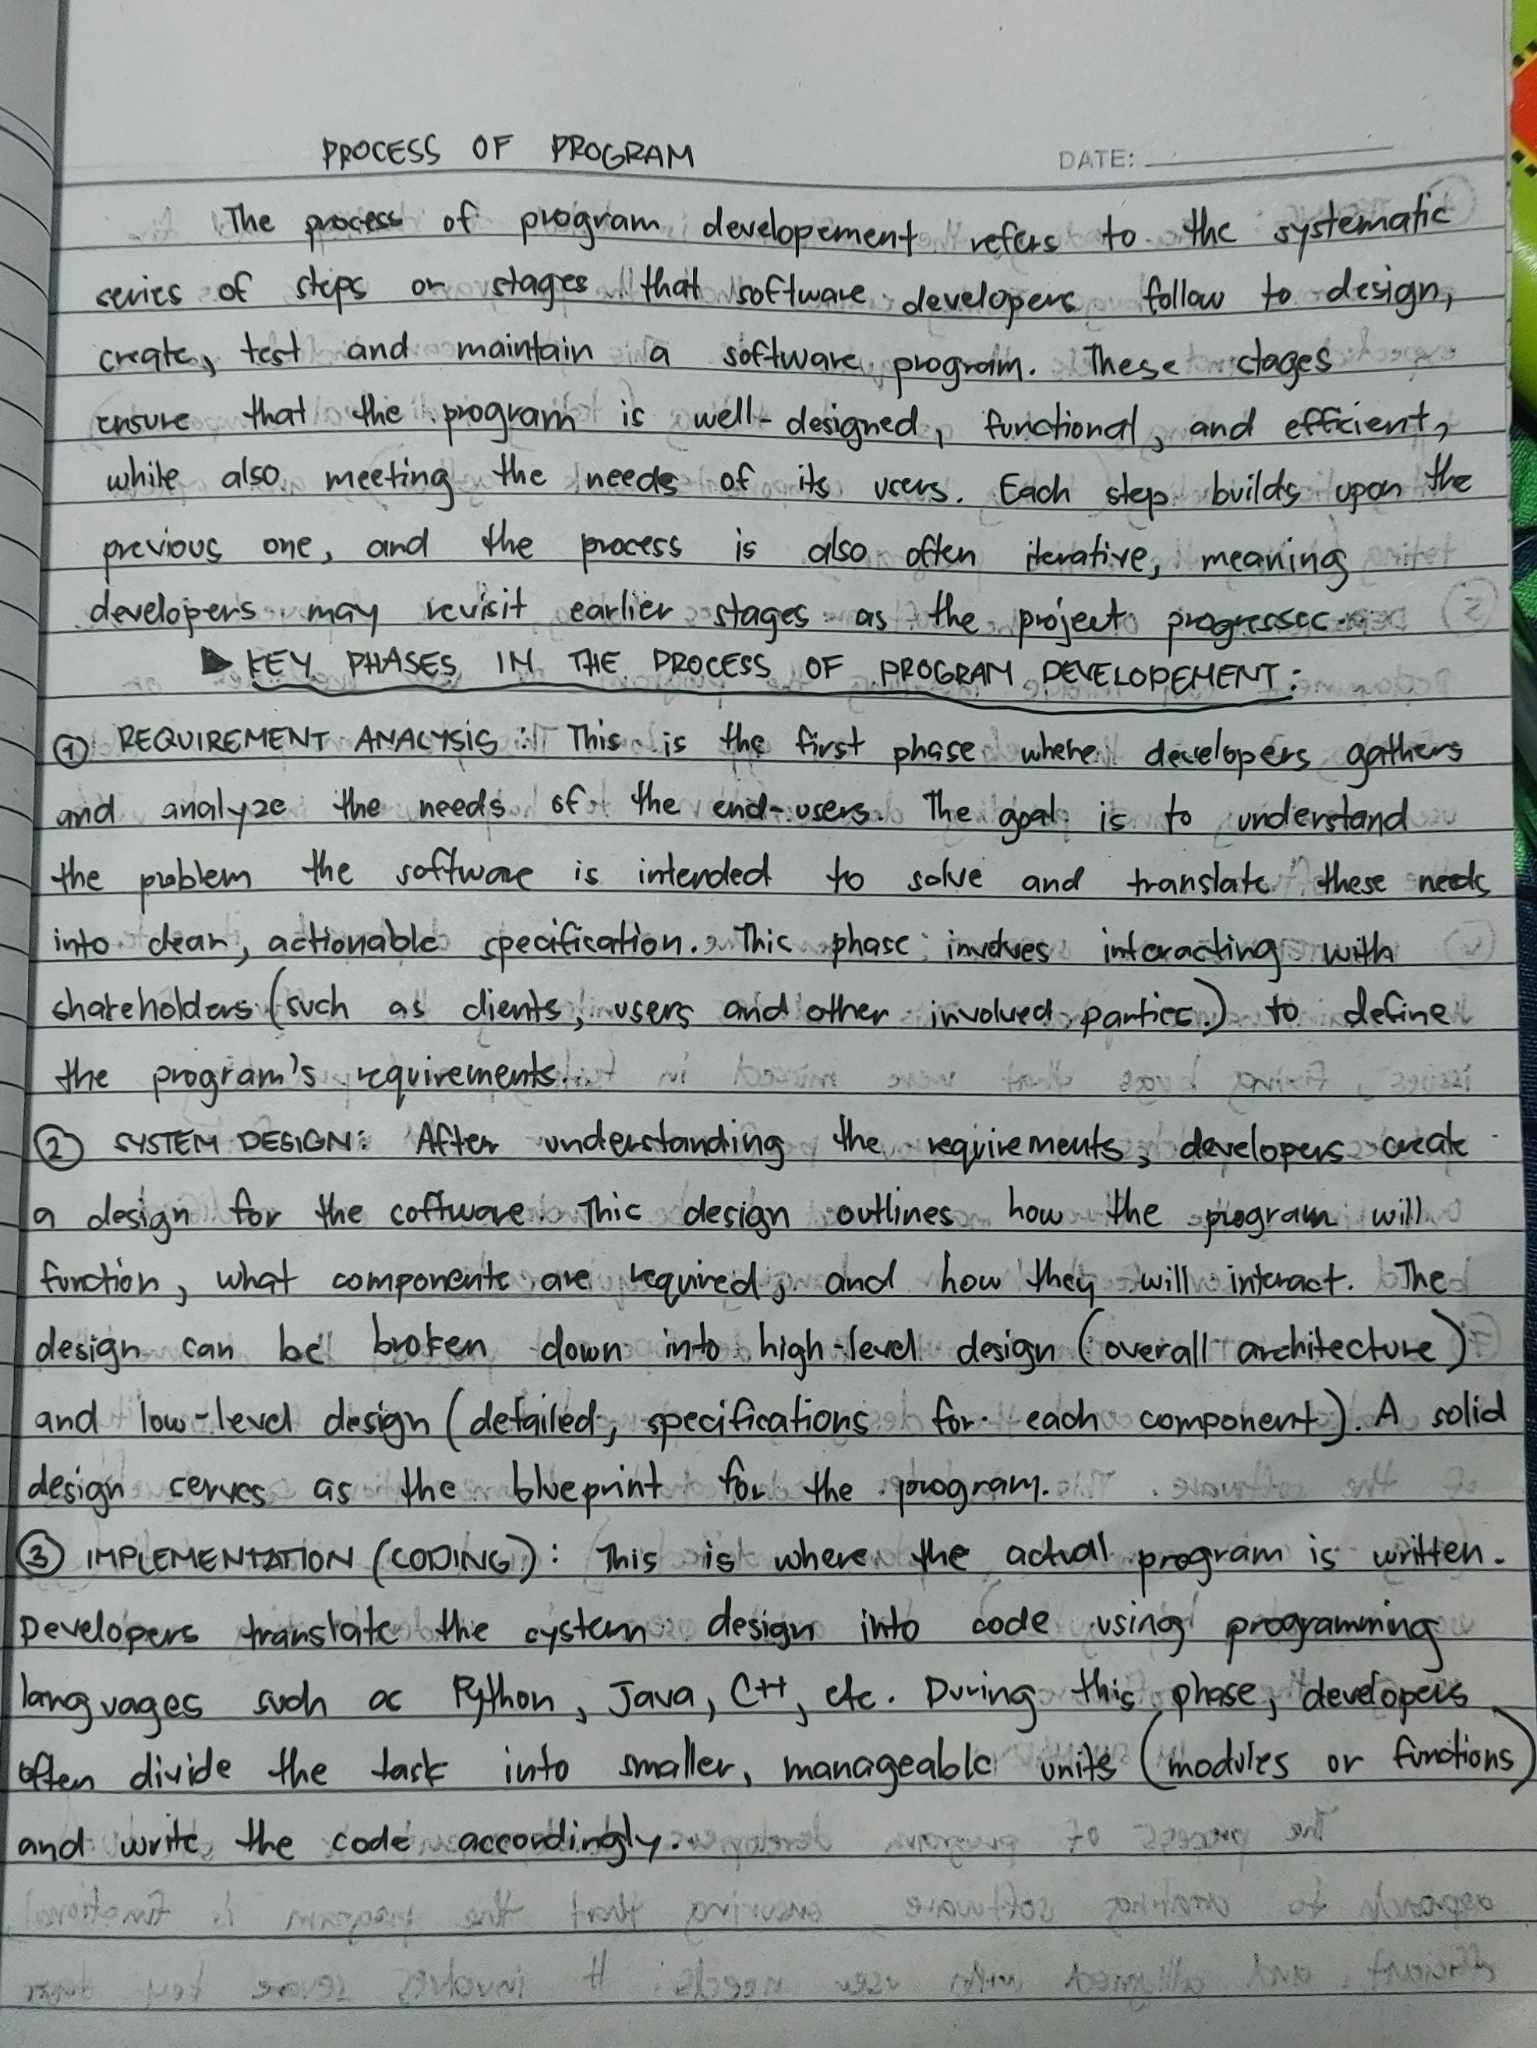 PROCESS OF PROGRAM
DATE:
The process of program developement refers to the systematic
series of steps or stages that software developers follow to design,
create, test and maintain a software program. These stages
ensure that the program is well-designed, functional, and efficient,
while also meeting the needs of its users. Each step builds upon the
previous one, and the process is also often iterative, meaning
developers may revisit earlier stages as the project progresses.
▶ KEY PHASES IN THE PROCESS OF PROGRAM DEVELOPEMENT:
① REQUIREMENT ANALYSIS: This is the first phase where developers gathers
and analyze the needs of the end-users. The goal is to understand
the problem the software is intended to solve and translate these needs
into clear, actionable specification. This phase involves interacting with
shareholders (such as clients, users and other involved parties.) to define
the program's requirements.
② SYSTEM DESIGN: After understanding the requirements, developers create
a design for the software. This design outlines how the program will
function, what components are required, and how they will interact. The
design can be broken down into high-level design (overall architecture)
and low-level design (detailed, specifications for each component). A solid
design serves as the blueprint for the program.
③ IMPLEMENTATION (CODING): This is where the actual program is written.
Developers translate the system design into code using programming
languages such as Python, Java, C++, etc. During this phase, developers
often divide the task into smaller, manageable units (modules or functions)
and write the code accordingly.